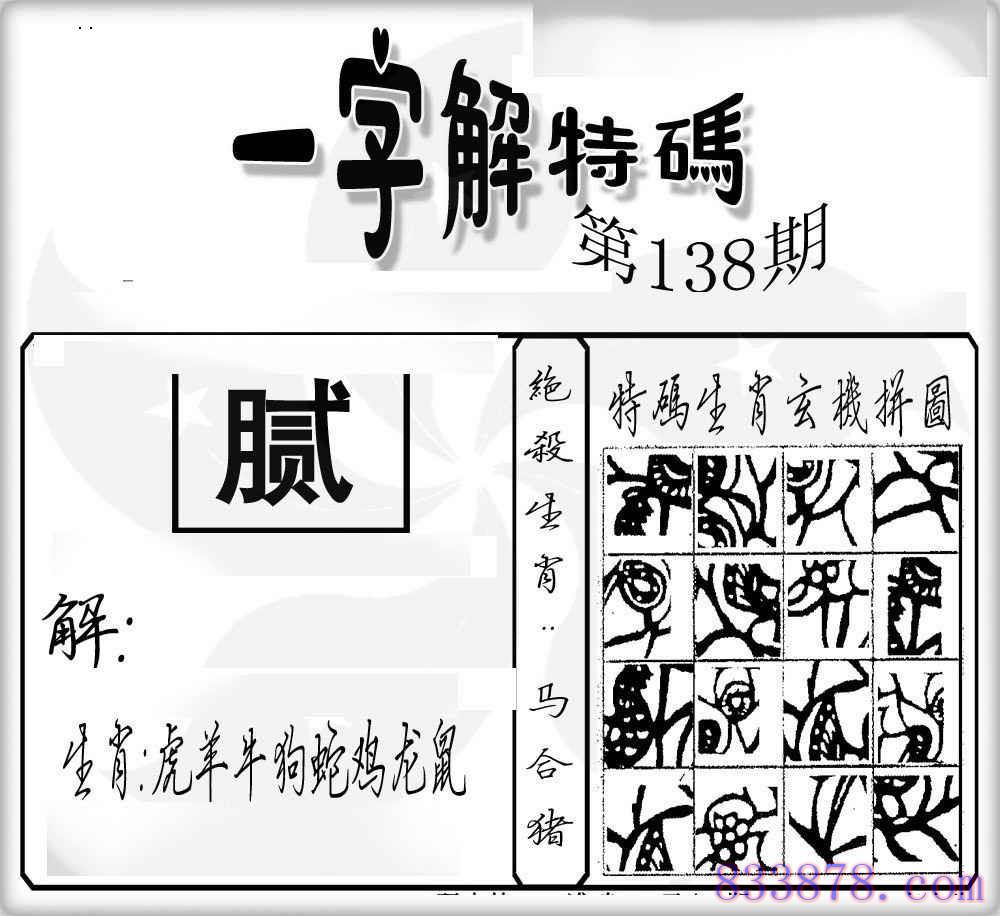 一字解特碼
第138期
腻
解:
生肖:虎羊牛狗蛇鸡龙鼠
絕殺生肖:马合猪
特碼生肖玄機拼圖
833878.com